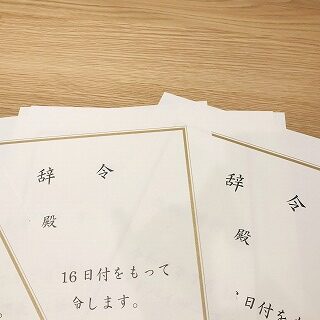 辞令
殿
16日付をもって
分します。
辞令
殿
日付をも